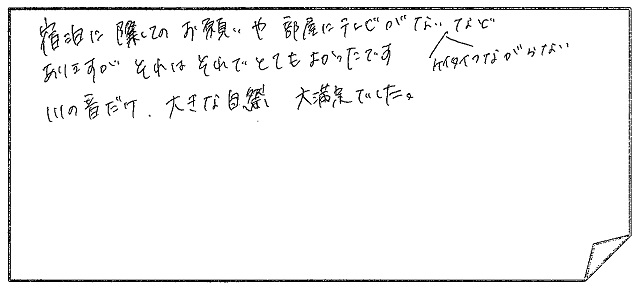 宿泊に際してのお願いや部屋にテレビがない、など
ケイタイつながらない
ありますが それは それでとてもよかったです
川の音だけ、大きな自然 大満足でした。